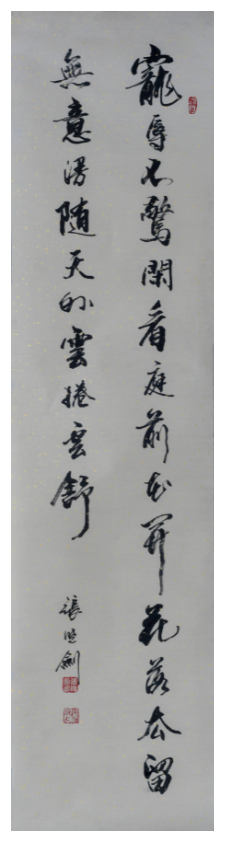 寵辱不驚閑看庭前花開花落去留
無意漫随天外雲捲云舒
張劍